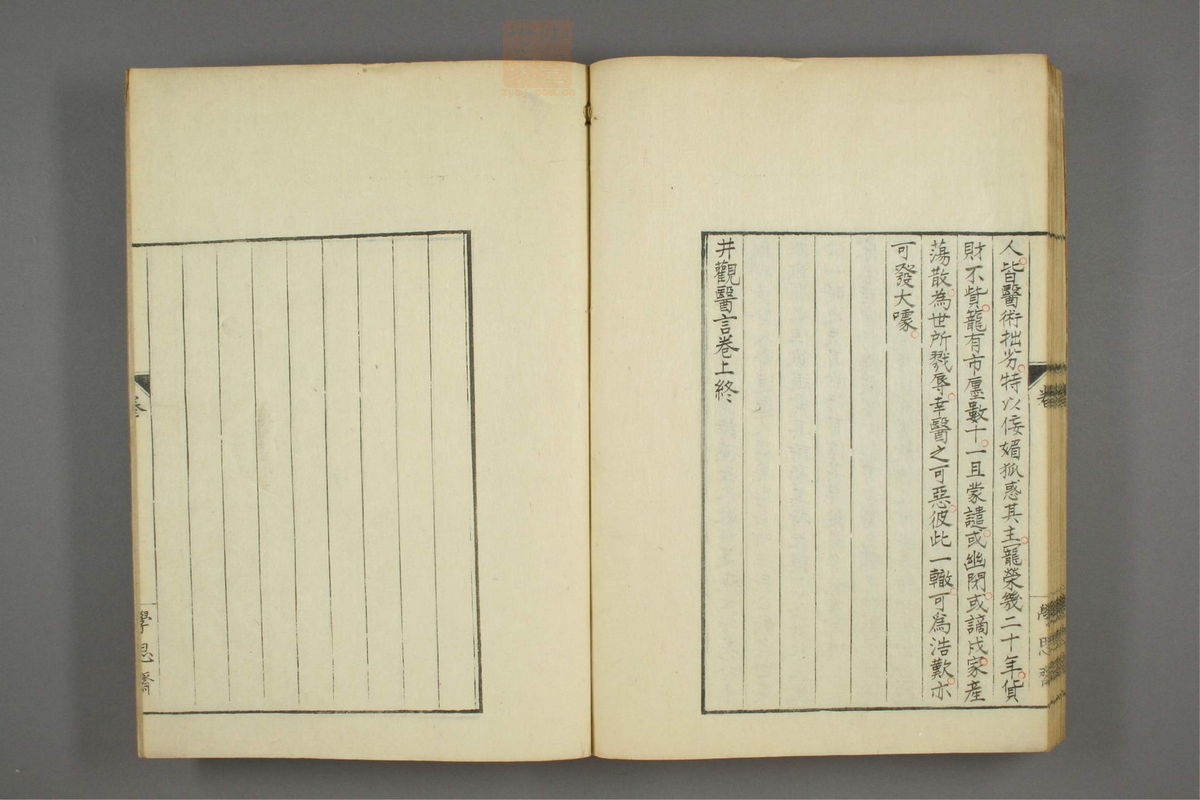 人皆醫術拙劣特以佞媚狐惑其主寵榮幾二十年貨
財不貲寵有市廛數十一旦蒙譴或幽閉或謫戍家產
蕩散為世所戮辱幸醫之可惡彼此一轍可為浩歎亦
可發大噱
井觀醫言卷上終
卷
學思齋
卷
學思齋